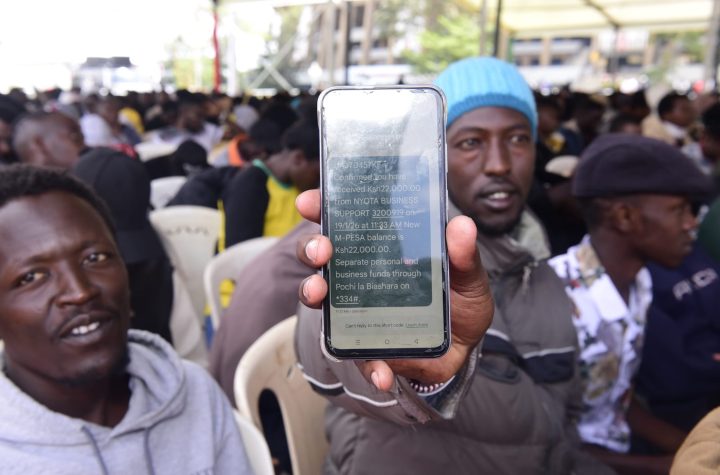 Confirmed.You have
received Ksh22,000.00
from NYOTA BUSINESS
SUPPORT 3200919 on
19/1/26 at 11:33 AM New
M-PESA balance is
Ksh22,000.00.
Separate personal and
business funds through
Pochi la Biashara on
*334#.
Can't reply to this short code. Learn more